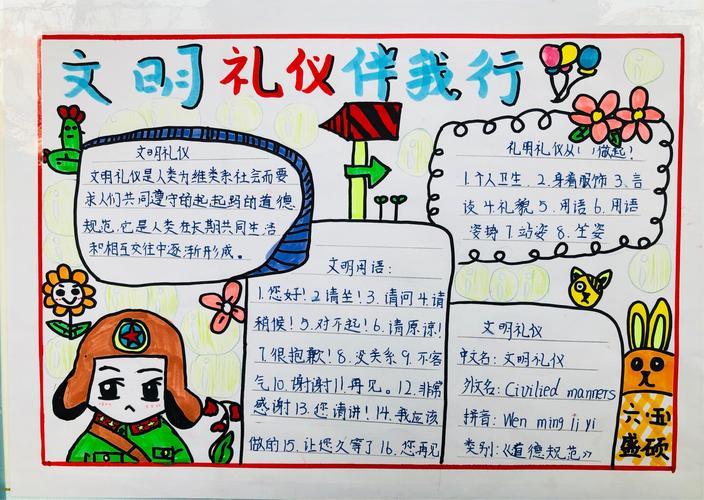 文明礼仪伴我行
文明礼仪
文明礼仪是人类为维类系社会而要
求人们共同遵守的起起码的道德
规范.它是人类在长期共同生活
和相互交往中逐渐形成。
礼明礼仪从 做起!
1.个人卫生.2.身着服饰 3.言
谈 4.礼貌 5.用语 6.用语
姿势 7.站姿 8.坐姿
文明用语:
1.您好!2.请坐!3.请问 4.请
稍候!5.对不起!6.请原谅!
7.很抱歉!8.没关系 9.不客
气 10.谢谢 11.再见。12.非常
感谢 13.您请讲!14.我应该
做的 15.让您久等了 16.您再见
文明礼仪
中文名:文明礼仪
外文名:Civilied manners
拼音:Wen ming li yi
类别:《道德规范》
六.五
盛硕